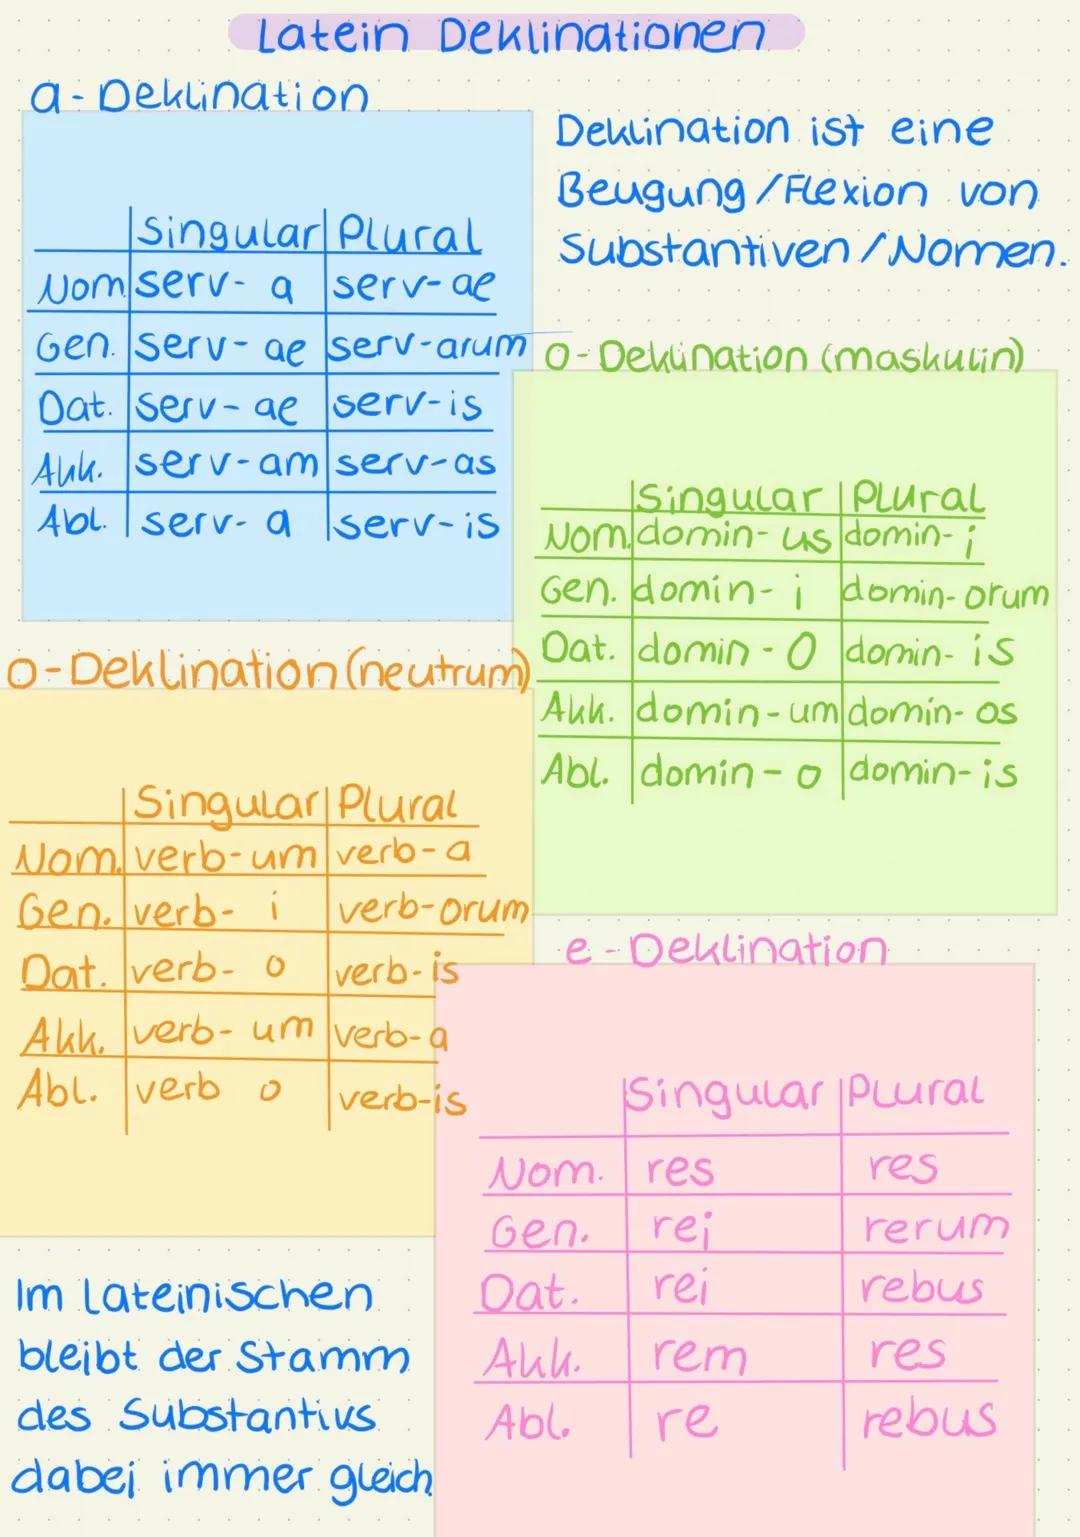 Latein Deklinationen
a-Deklination
Singular Plural
Nom serv- a serv-ae
Gen. serv- ae serv-arum
Dat. serv- ae serv-is
Akk. serv-am serv-as
Abl. serv- a serv-is
Deklination ist eine
Beugung/Flexion von
Substantiven/Nomen.
o-Deklination (maskulin)
Singular Plural
Nom. domin- us domin- i
Gen. domin- i domin-orum
Dat. domin - O domin- is
Akk. domin-um domin- os
Abl. domin - o domin-is
o-Deklination (neutrum)
Singular Plural
Nom. verb-um verb-a
Gen. verb- i verb-orum
Dat. verb- o verb-is
Akk. verb- um verb-a
Abl. verb o verb-is
e-Deklination
Singular Plural
Nom. res res
Gen. rei rerum
Dat. rei rebus
Akk. rem res
Abl. re rebus
Im Lateinischen
bleibt der Stamm
des Substantivs
dabei immer gleich